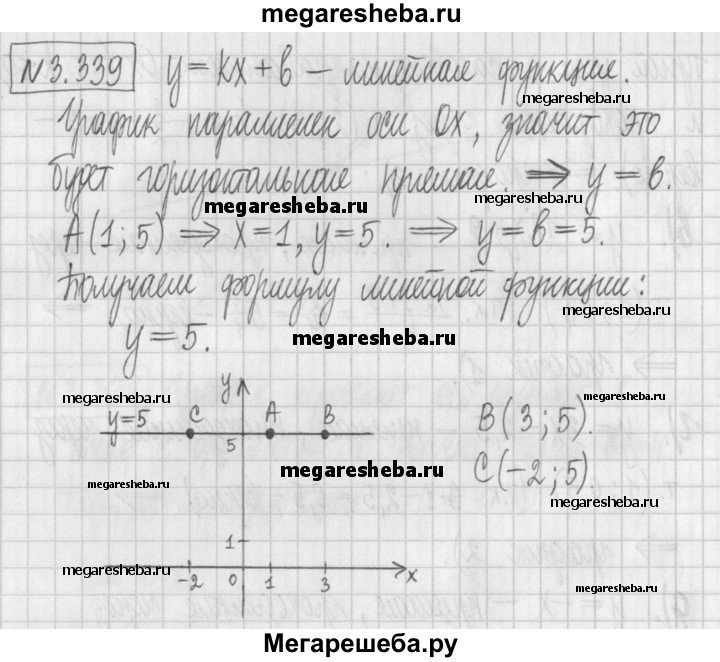 megaresheba.ru
N3.339 y=kx+b – линейная функция.
megaresheba.ru
График параллелен оси Ox, значит это
будет горизонтальная прямая. ⟹ y=b.
megaresheba.ru
megaresheba.ru
A(1;5) ⟹ x=1, y=5. ⟹ y=b=5.
megaresheba.ru
Получаем формулу линейной функции:
megaresheba.ru
y=5.
megaresheba.ru
y
megaresheba.ru
megaresheba.ru
y=5 C A B B(3;5).
5
megaresheba.ru
C(-2;5).
megaresheba.ru
megaresheba.ru
1
megaresheba.ru
-2 0 1 3 x
megaresheba.ru
megaresheba.ru
Мегарешеба.ру